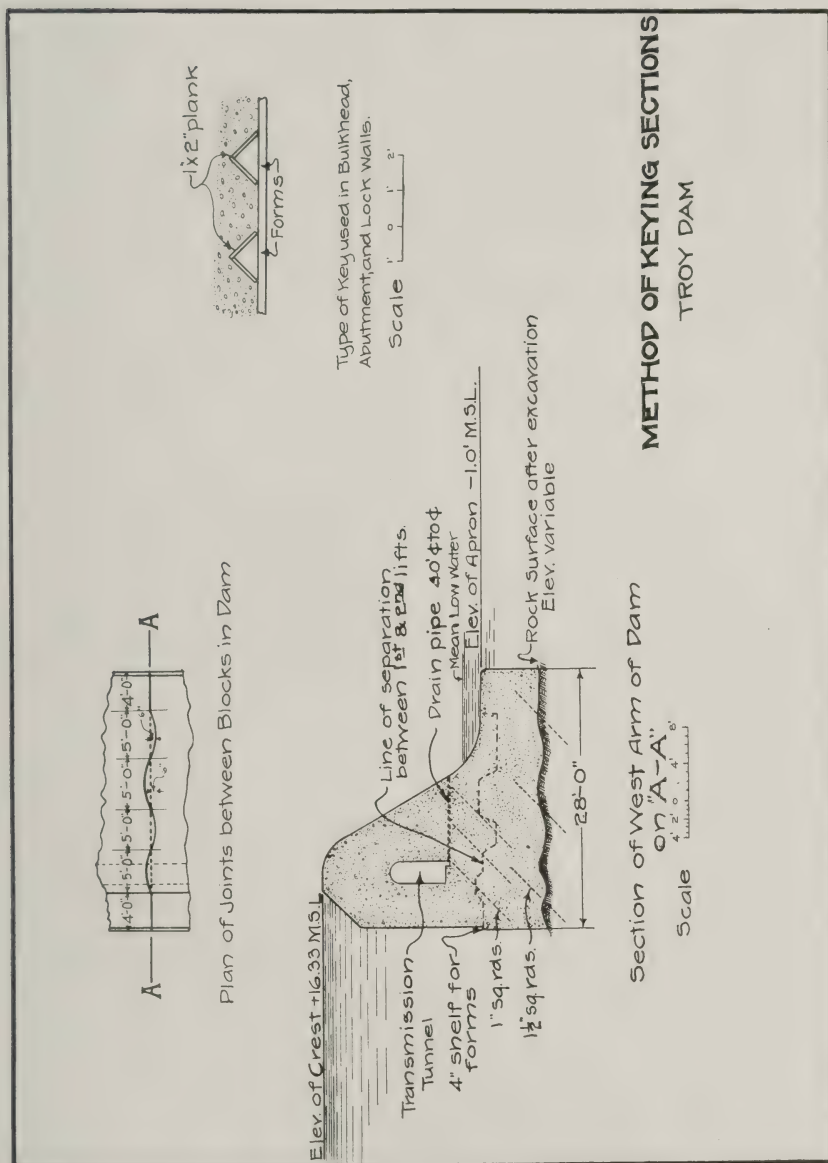 A
A
4'-0"
5'-0"
5'-0"
5'-0"
5'-0"
4'-0"
6"
6"
Plan of Joints between Blocks in Dam
1"x2" plank
Forms
Type of Key used in Bulkhead,
Abutment, and Lock Walls.
Scale
1' 0 1' 2'
Elev. of Crest +16.33 M.S.L.
Transmission
Tunnel
4" shelf for
forms
1" sq. rds.
1½" sq. rds.
Line of separation
between 1st & 2nd lifts.
Drain pipe 40' ¢ to ¢
Mean Low Water
Elev. of Apron -1.0' M.S.L.
Rock surface after excavation
Elev. variable
28'-0"
Section of West Arm of Dam
on "A-A"
Scale
4' 2' 0 4' 8'
METHOD OF KEYING SECTIONS
TROY DAM